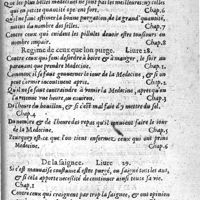 Que les plus belles medecines ne sont pas les meilleures: ny celles
qui en petite quantité sont fortes. Chap.6
Qu'on ne fait estimer la bonne purgation de la grand' quantité,
mais du retour en santé. Chap.7
Contre ceux qui cuident les pillules deuoir estre tousiours en
nombre impair. Chap.8
Regime de ceux que lon purge. Liure 28.
Contre ceux qui desendent à boire & à manger, le soir au
parauant que prendre Medecine. Chap.1
Comment il se faut gouuerner le iour de la Medecine, & s'il faut
on peut dormir. Chap.2
Qu'il ne se faut contraindre à vomir la Medecine, ayant qu'on
l'a retenue vne heure, ou enuiron. Chap.3
De l'heure du bouillon, & s'il est mal fait d'y mettre du sel.
Chap.4
Du nombre & de l'heure des repas qu'il conuient faire le iour
de la Medecine. Chap.5
Pourquoy est-ce que l'on tient enfermez ceux qui ont prins
Medecine. Chap.6
De la saignee. Liure 29.
S'il est mauuaise constume d'estre purgé, ou saigné tous les ans,
& si cela apporte necessité de continuer ainsi toute sa vie.
Chap.1
Contre ceux qui craignent par trop la saignee, & ont opinion